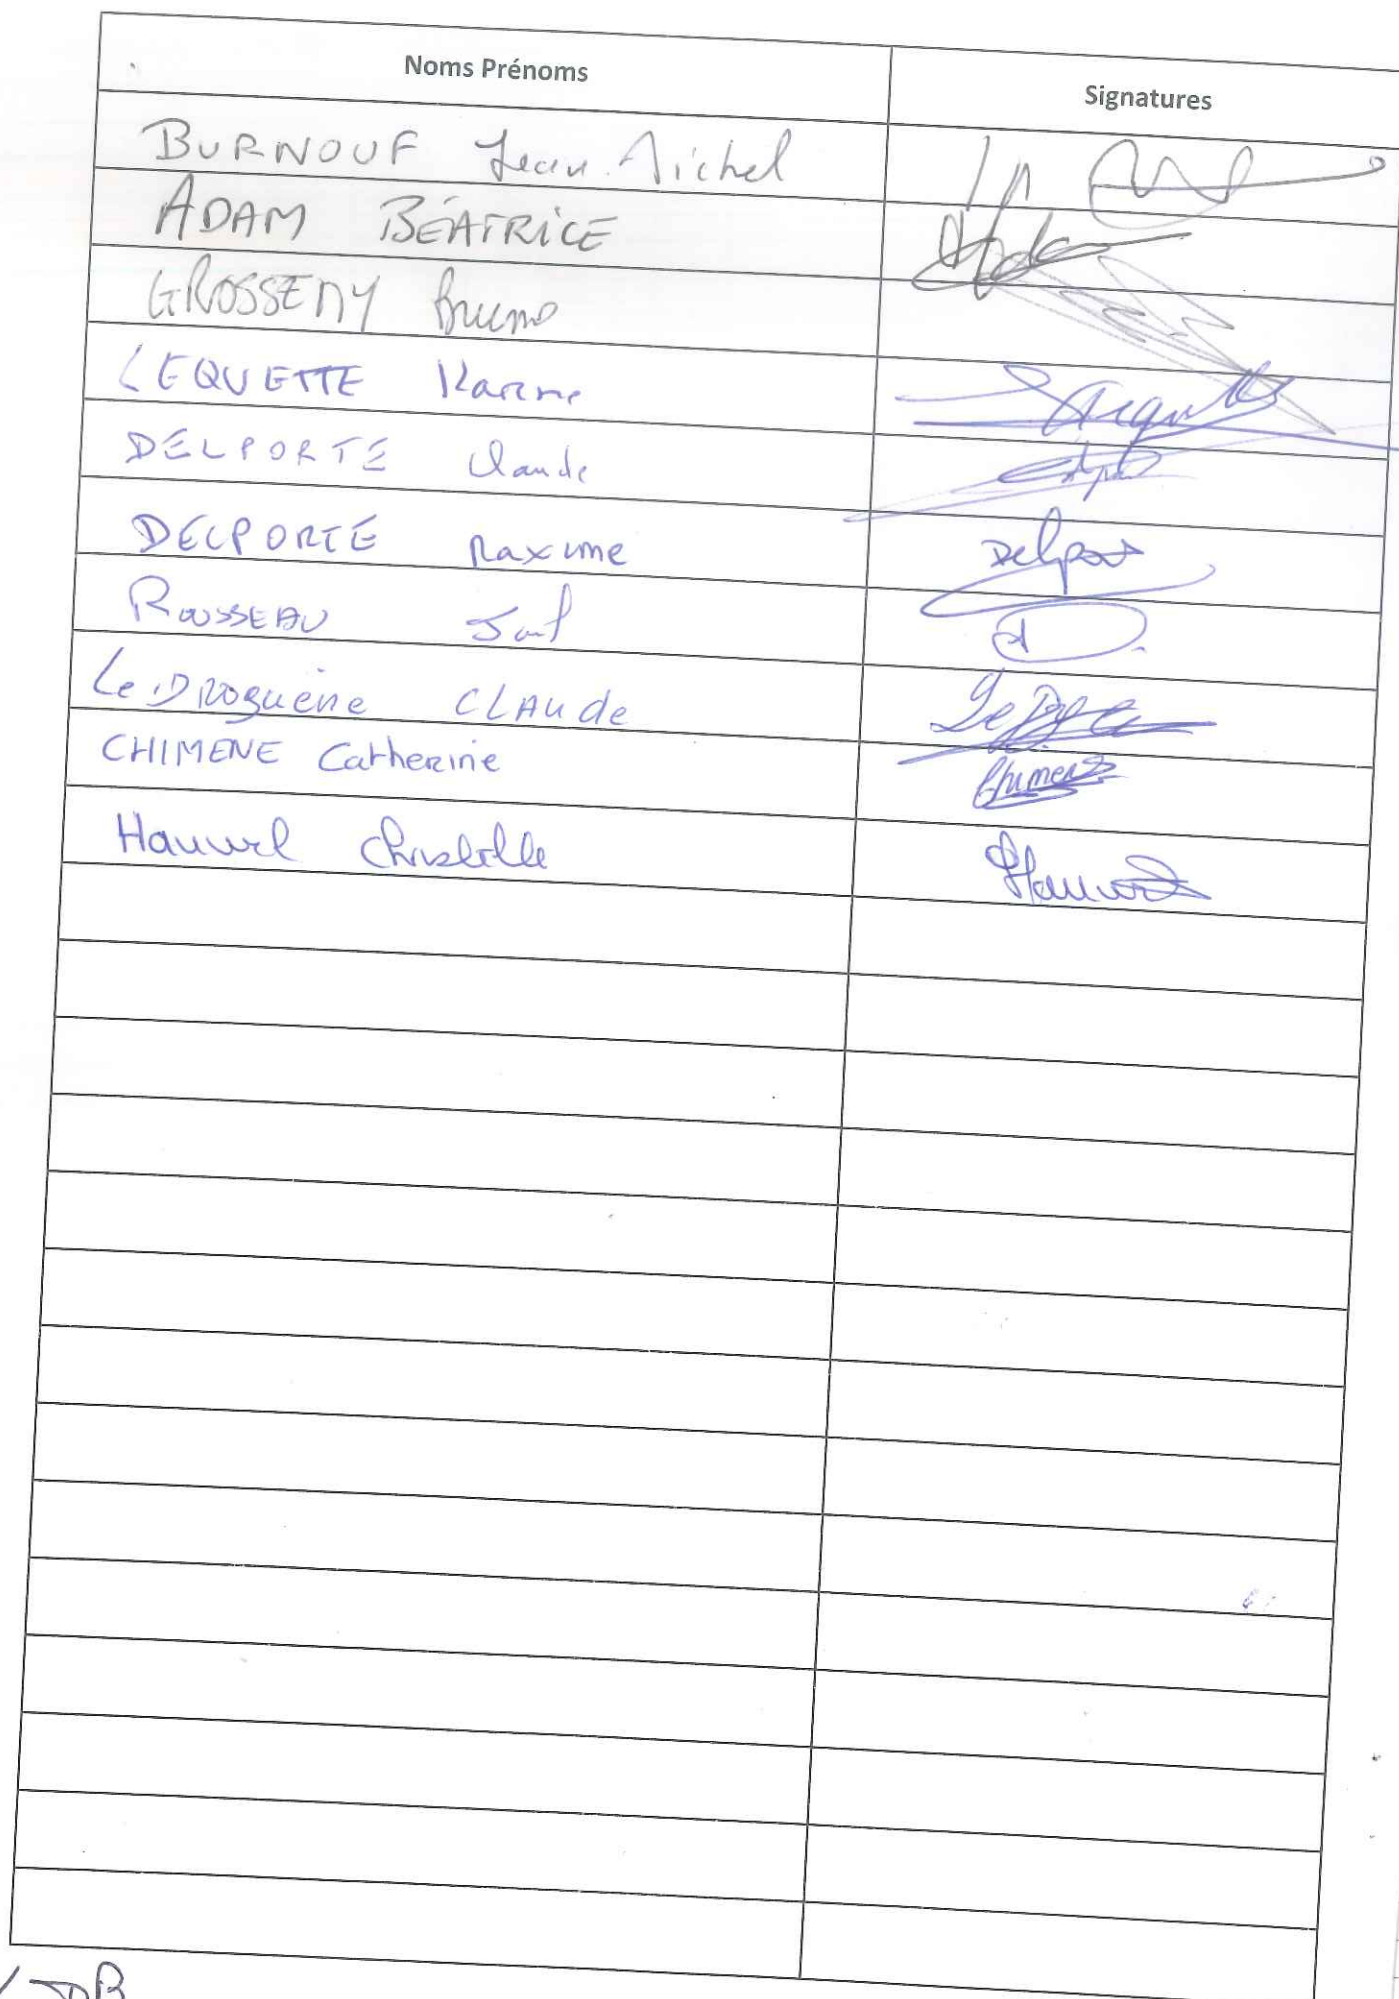 Noms Prénoms Signatures
BURNOUF Jean-Michel
ADAM BÉATRICE
GROSSEMY Bruno
LEQUETTE Karine
DELPORTE Claude
DELPORTE Maxime Delpor
ROUSSEAU
Le Droguene CLAude
CHIMENE Catherine Chimene
Hauwel Christelle Hauwel